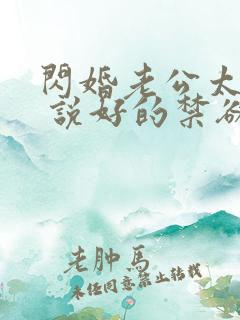 閃婚老公太
說好的禁欲
老肿馬
未经同意禁止转载